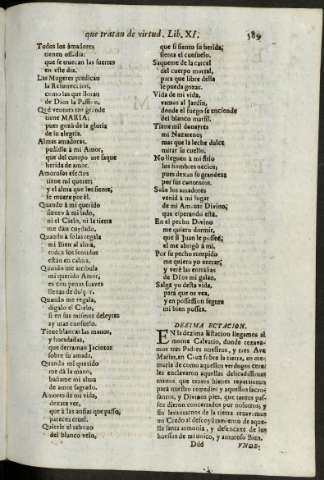 que tratan de virtud. Lib. XI. 589
Todos los amadores
tienen este dia
que se truecan las suertes
en este dia.
Las Mugeres predican
la Resurreccion,
como las que lloran
de Dios la Passion.
Què ventura tan grande
tiene MARIA;
pues goza de la gloria
de su alegria.
Almas amadoras,
pedidle à mi Amor,
que del cuerpo me saque
herida de amor.
Amorosos efectos
tiene mi querer;
y el alma que los siente,
se muere por èl.
Quando à mi querido
tienen à mi lado,
ni el Cielo, ni la tierra
me dàn cuydado.
Quando à solas regala
mi Bien al alma,
todos los sentidos
estàn en calma.
Quando me
mi querido Amor,
es con penas suaves
llenas de
Quando me regala,
digalo el Cielo,
si en sus mismos deleytes
ay mas consuelo.
Tiene blancas la manos,
y
que derraman Jacintos
sobre su amada.
Quando mi querido
me dà la mano,
bañame mi alma
de amor sagrado.
Amores de mi vida,
dexaos ver,
que à las ansias que passo,
pareceis cruel.
Quierele el
del blanco velo,
que si siento su herida,
sienta el consuelo.
Saqueme de la carcel
del cuerpo mortal,
para que libre della
le pueda gozar.
Vida de mi vida,
vamos al jardin,
donde el fuego se enciende
del blanco marfil.
Tiene mil
mi Nazareno;
mas que la leche dulce
mirar su cuello.
No lleguen à mi sitio
los hombres necios;
pues dexan su grandeza
por sus contentos.
Solo los amadores
venid à mi lugar
de mi Amante Divino,
que esperando està.
En el pecho Divino
me quiero dormir,
que si Juan le possee,
el me abrigò à mi.
Por su pecho rompido
me quiero yo entrar;
y verè las entrañas
de Dios mi galan.
Salga yo desta vida,
para que os vea,
y en possession segura
mi bien possea.
DEZIMA ESTACION.
EN la dezima Estacion llegamos al
monte Calvario, donde rezava-
mos tres Padres nuestros, y tres Ave
Marias, en Cruz sobre la tierra, en me-
moria de como aquellos verdugos crue-
les enclavaron aquellas delicadissimas
manos, que tantos bienes repartieron
para nuestro remedio; y aquellos santos
y Divinos pies, que tantos passos
dieron concertados por nosotros; y
sin levantarnos de la tierra rezavamos
un Credo al descoyuntamiento de aque-
lla santa armonia, y descanso de los
huessos de mi unico, y amoroso Bien.
Ddd